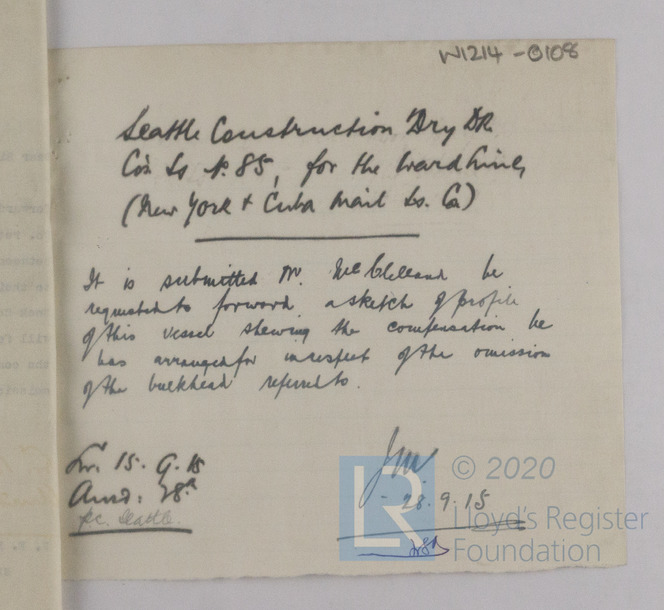 W1214-0108
Seattle Construction Dry Dk
Co's Ss No. 85, for the Ward Line,
(New York & Cuba Mail Ss. Co)
It is submitted Mr. McClelland be
requested to forward a sketch of profile
of this vessel shewing the compensation he
has arranged for in respect of the omission
of the bulkhead referred to.
15.9.15
Ansd: 28th
Seattle.
28.9.15
LR
© 2020
Lloyd's Register
Foundation